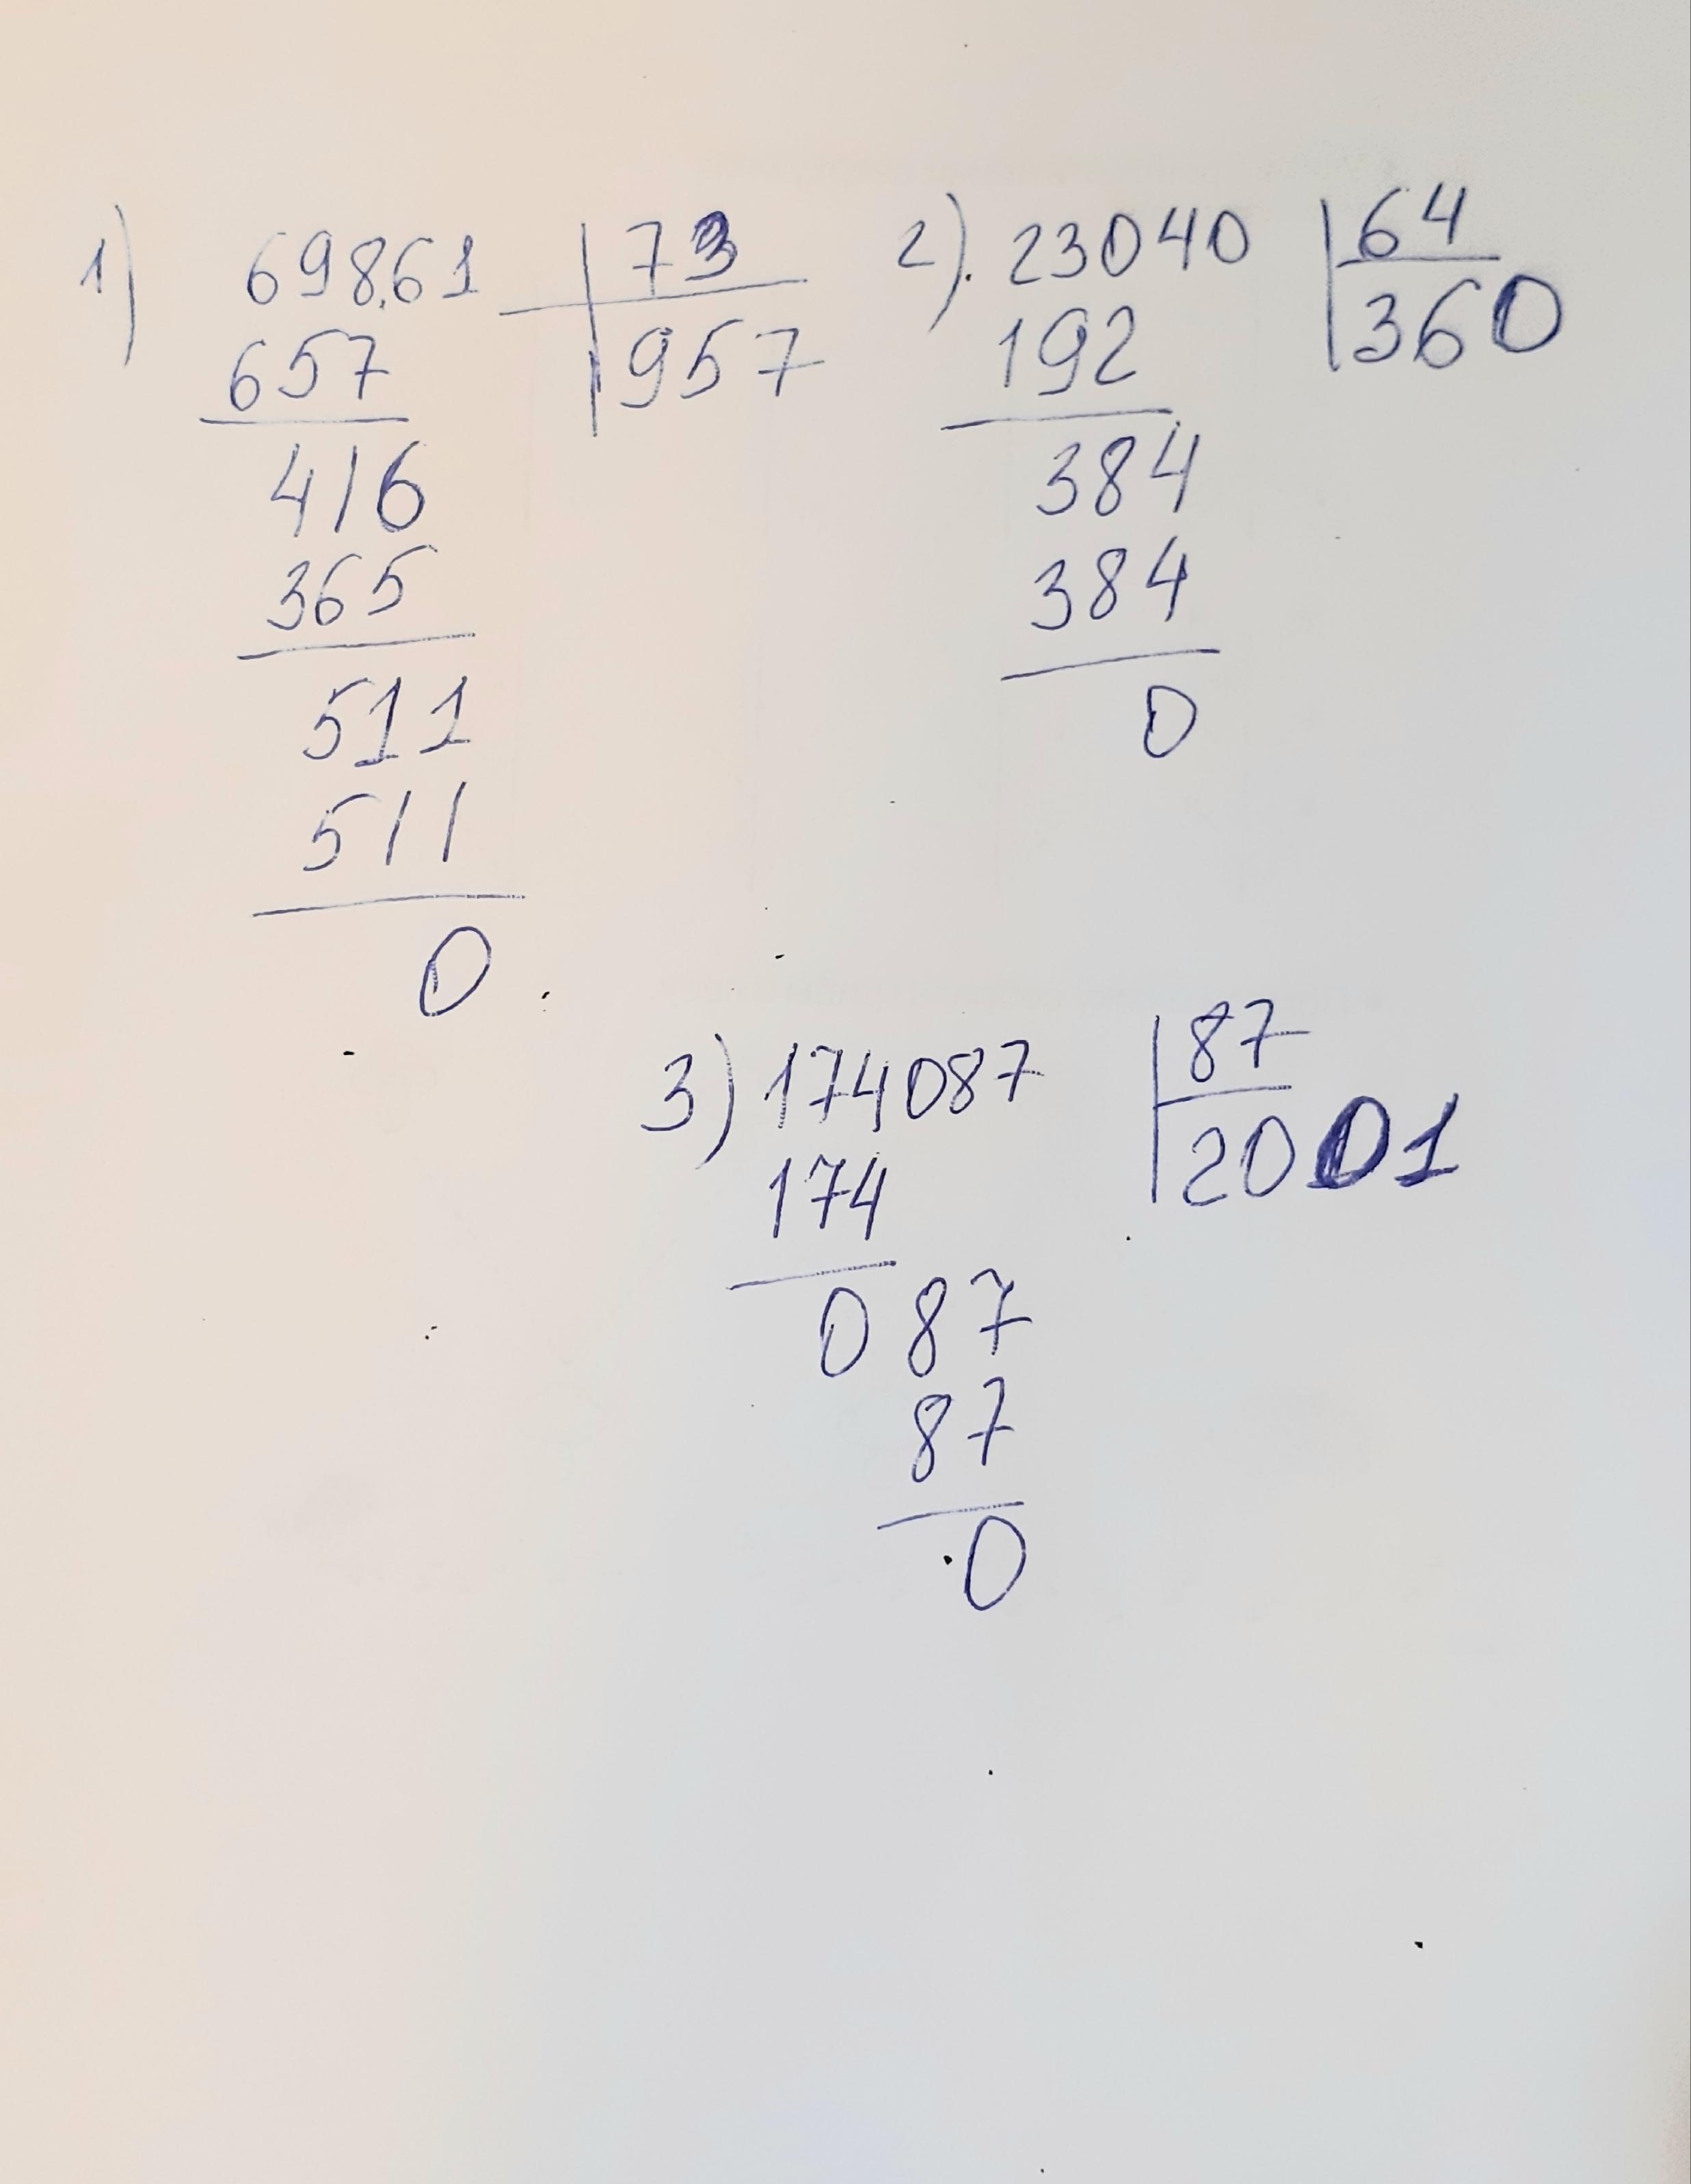 1) 69861 | 73
657 | 957
416
365
511
511
0
2). 23040 | 64
192 | 360
384
384
0
3) 174087 | 87
174 | 2001
087
87
0